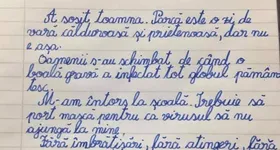 A sosit toamna. Parcă este o zi de
vară călduroasă și prietenoasă, dar nu
e așa.
Oamenii s-au schimbat, de când o
boală gravă a infectat tot globul pămân
tesc.
M-am întors la școală. Trebuie să
port mască pentru ca virusul să nu
ajungă la mine.
Fără îmbrățișări, fără atingeri, fără